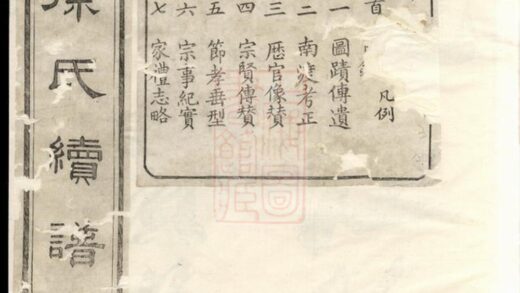 首 凡例
一 圖蹟傳遺
二 南考正
三 歴官像贊
四 宗賢傳贊
五 節孝垂型
六 宗事紀實
七 家禮志略
氏續譜